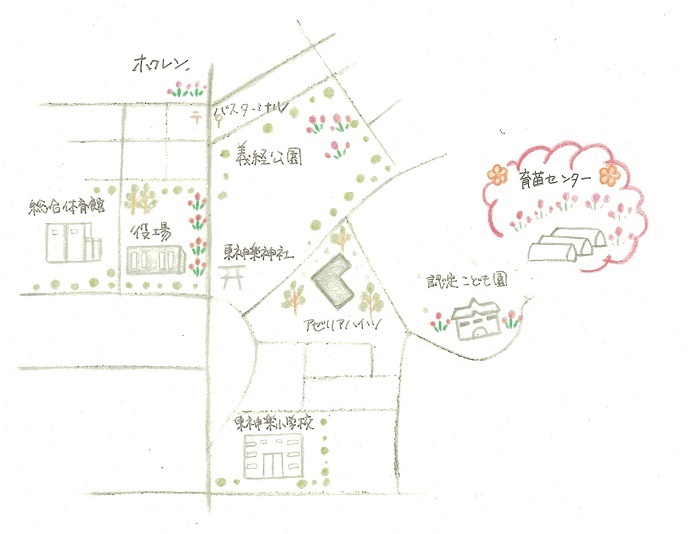 ホクレン
〒
バスターミナル
義経公園
育苗センター
総合体育館
役場
東神楽神社
認定こども園
アゼリアハイツ
東神楽小学校